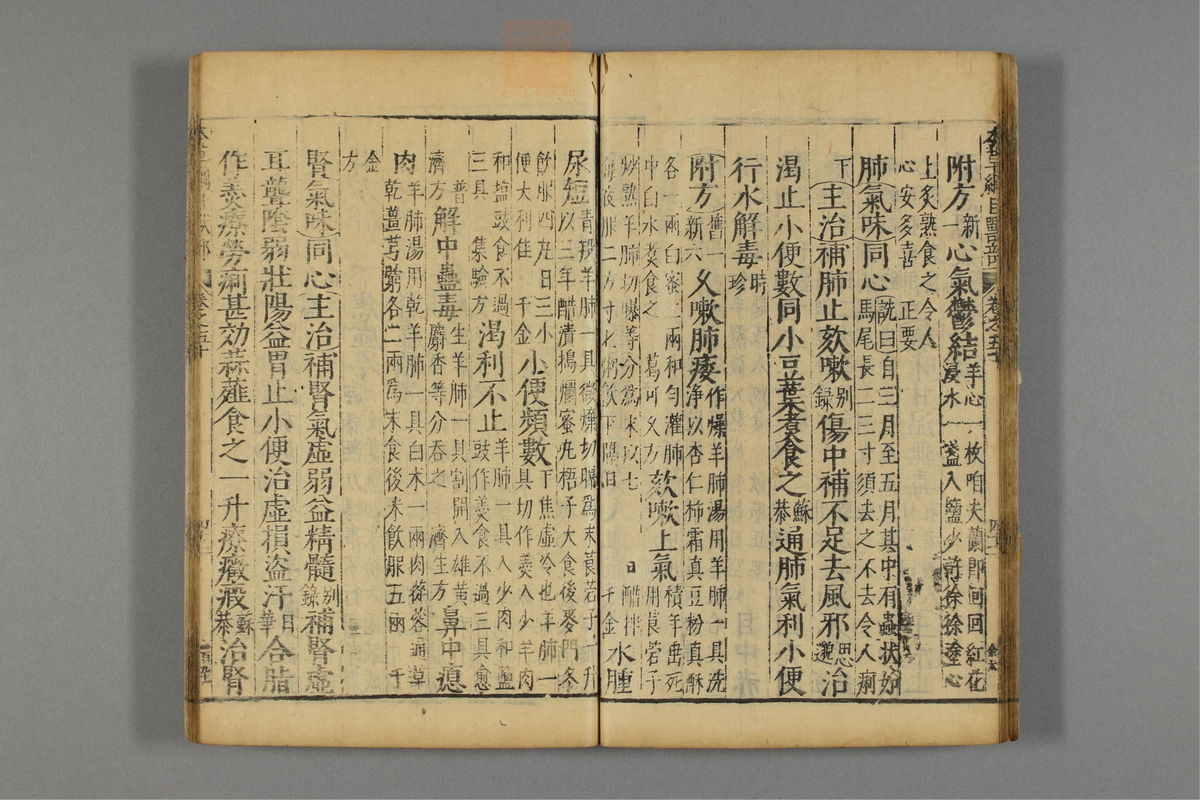 附方新一心氣鬱結羊心一枚咱夫蘭卽回回紅花浸水一盞入鹽少許徐徐塗心
上炙熟食之令人心安多喜 正要
肺氣味同心詵曰自三月至五月其中有蟲狀如馬尾長二三寸須去之不去令人痢
下主治補肺止欬嗽别錄傷中補不足去風邪思邈治
渴止小便數同小豆葉煮食之蘇恭通肺氣利小便
行水解毒時珍
附方舊一新六久嗽肺痿作燥羊肺湯用羊肺一具洗淨以杏仁柿霜真豆粉真酥
各一兩白蜜二兩和勻灌肺中白水煮食之 葛可久方欬嗽上氣積年垂死用莨菪子
炒熟羊肺切曝等分爲末以七日醋拌每夜服二方寸匕粥飲下隔日千金水腫
尿短青羖羊肺一具微煠切曝爲末莨菪子一升以三年醋漬搗爛蜜丸梧子大食後麥門冬
飲服四丸日三小便大利佳 千金小便頻數下焦虛冷也羊肺一具切作羹入少羊肉
和塩豉食不過三具 集驗方渴利不止羊肺一具入少肉和鹽豉作羹食不過三具愈
普濟方解中蠱毒生羊肺一具割開入雄黄麝香等分吞之 濟生方鼻中瘜
肉羊肺湯用乾羊肺一具白朮一兩肉蓯蓉通草乾薑芎藭各二兩爲末食後米飲服五兩 千
金方
腎氣味同心主治補腎氣虛弱益精髓别錄補腎虛
耳聾陰弱壯陽益胃止小便治虛損盗汗日華合脂
作羹療勞痢甚効蒜薤食之一升療癥瘕蘇恭治腎